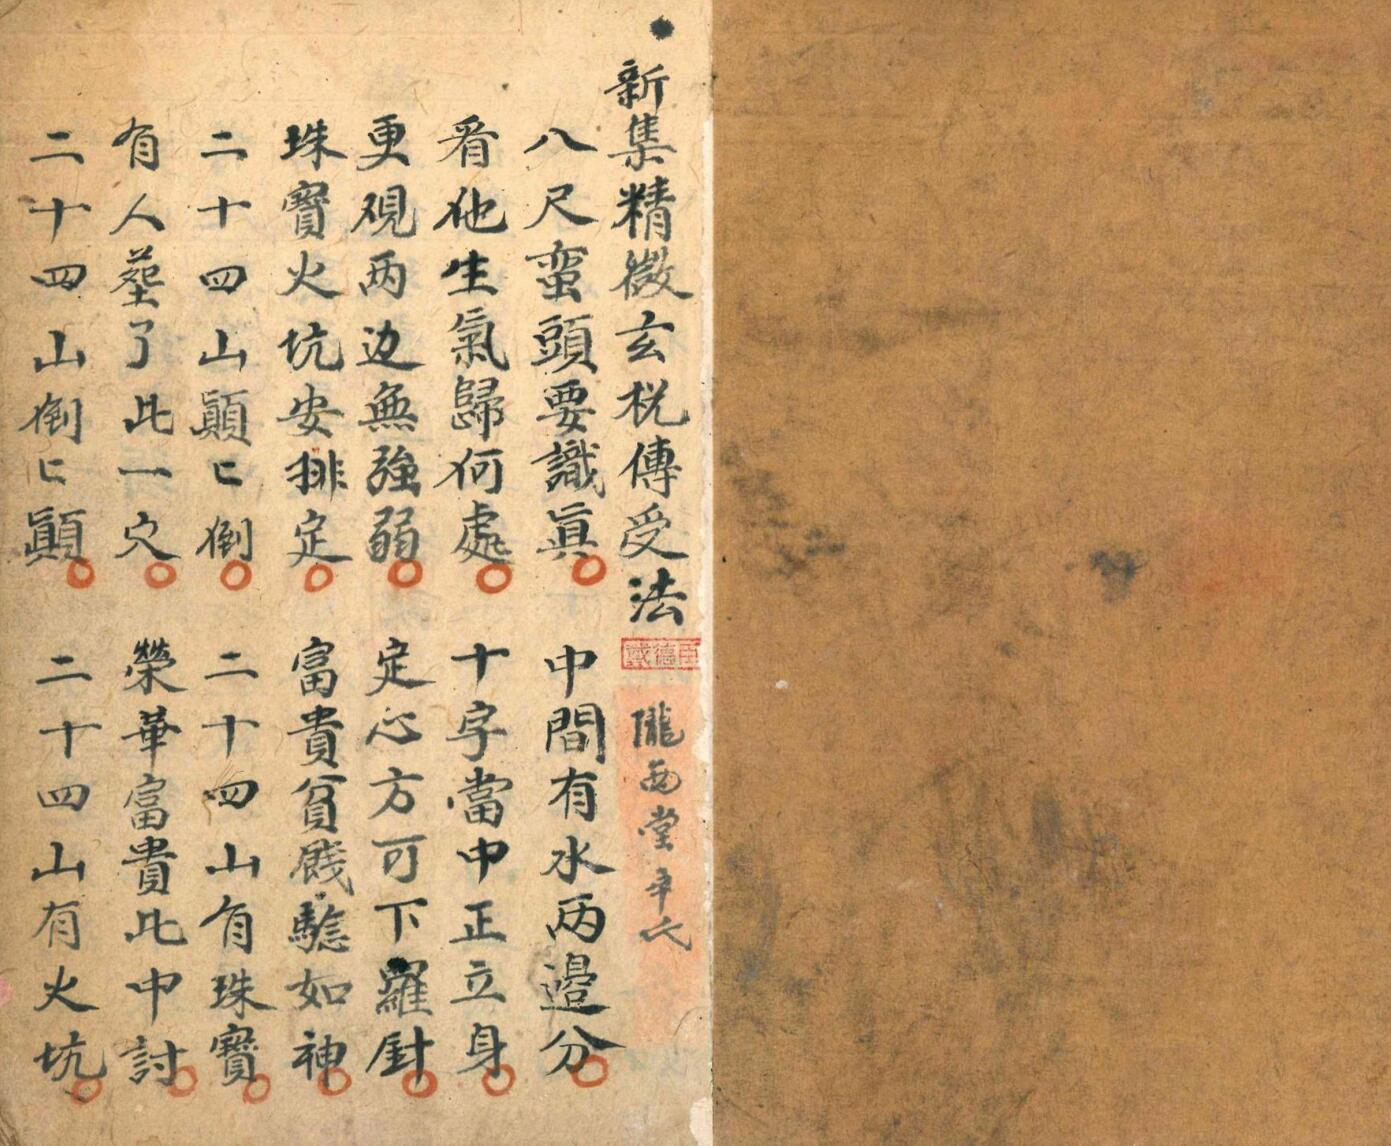 新集精微玄桄傳受法 隴西堂
八尺蛮頭要識眞 中間有水两邉分
看他生氣歸何處 十字當中正立身
更覌两边無強弱 定心方可下羅針
珠寳火坑安排定 富貴貧賤騐如神
二十四山顛〻倒 二十四山有珠寳
有人塟了此一穴 榮華富貴此中討
二十四山倒〻顛 二十四山有火坑